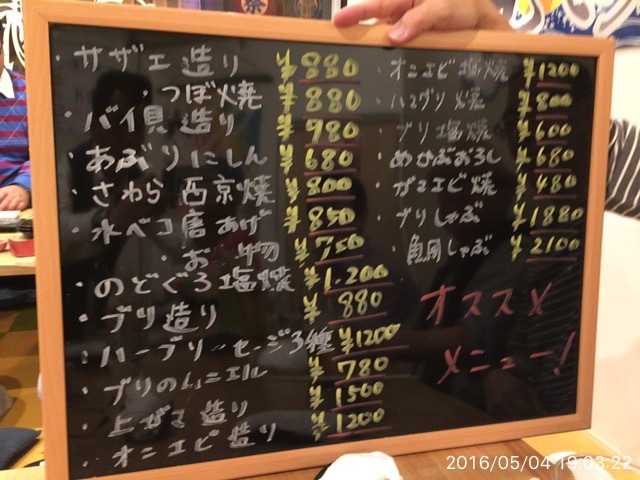 ・サザエ造り ¥880
・つぼ焼 ¥880
・バイ貝造り ¥780
・あぶりにしん ¥680
・さわら 西京焼 ¥800
・水ベコ唐あげ ¥850
・お 物 ¥750
・のどぐろ塩焼 ¥1.200
・ブリ造り ¥880
・ハーブソーセージ3種 ¥1200
・ブリのムニエル ¥780
・上ガマ造り ¥1500
・オニエビ造り ¥1200
・オニエビ塩焼 ¥1200
・ハマグリ焼 ¥800
・ブリ塩焼 ¥600
・めかぶおろし ¥680
・ガマエビ焼 ¥480
・ブリしゃぶ ¥1880
・しゃぶ ¥2100
オススメ
メニュー!
2016/05/04 19:03:22